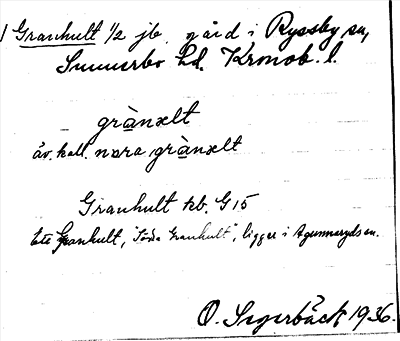 1 Granhult 1/2 jb. gård i Ryssby sn,
Sunnerbo hd. Kronob. l.
grànǝlt
äv. kall. nora grànǝlt
Granhult kb. G15
Granhult, "Södra Granhult", ligger i Agunnaryds sn.
O. Segerbäck 1936.